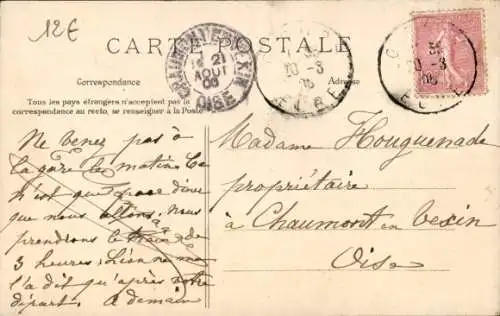 12€
CARTE POSTALE
CHAUMONT-EN-VEXIN
21
AOUT
06
OISE
10 -3
EURE
10 -3
EURE
Correspondance
Adresse
Tous les pays étrangers n'acceptent pas la
correspondance au recto, se renseigner à la Poste
Ne venez pas à
la gare le matin. Ce
n'est que pour dîner
que nous allons, nous
prendrons le train de
3 heures, Léonne ne me
l'a dit qu'après votre
départ. A demain
Madame Houguenade
propriétaire
à Chaumont en Vexin
Oise